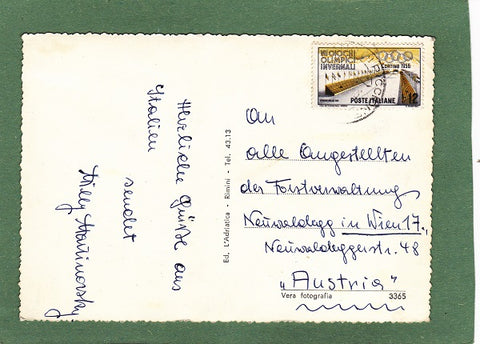 Herzliche Grüße aus
Italien
sendet
Milly
Ed. L'Adriatica - Rimini - Tel. 43.13
VII GIOCHI
OLIMPICI
INVERNALI
CORTINA 1956
POSTE ITALIANE
L. 12
An
alle Angestellten
der Forstverwaltung
Neuwaldegg in Wien 17.,
Neuwaldeggerstr. 48
„Austria"
Vera fotografia 3365